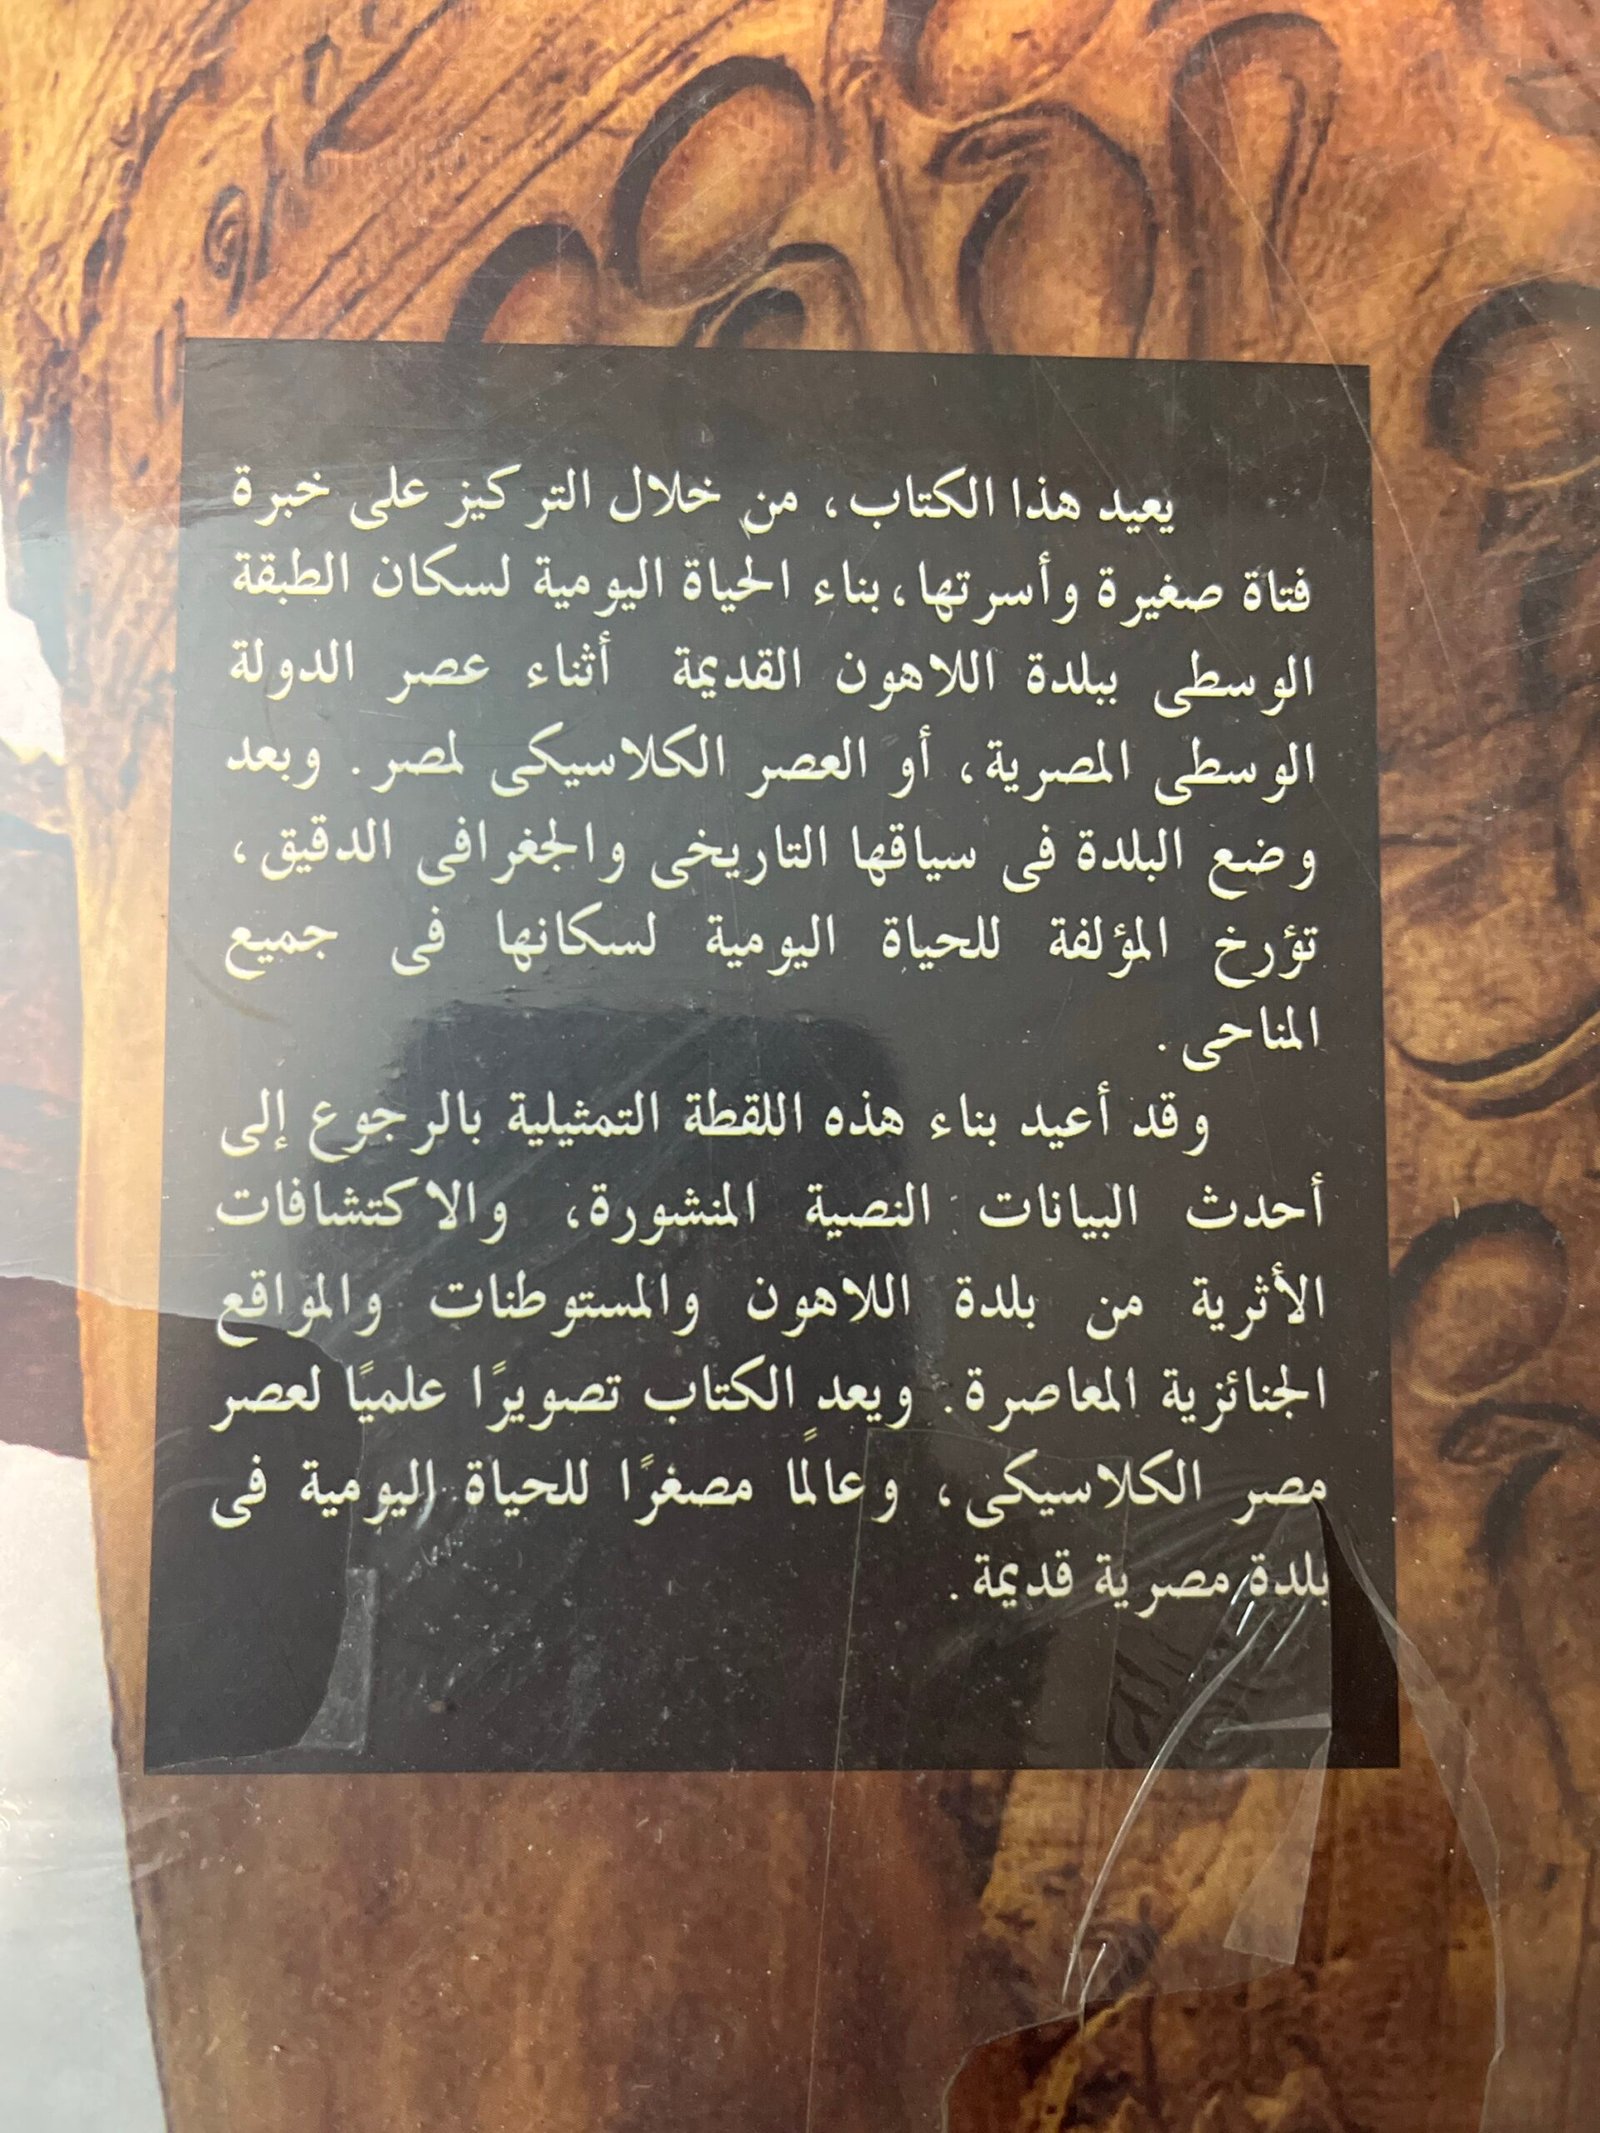 يعيد هذا الكتاب، من خلال التركيز على خبرة
فتاة صغيرة وأسرتها، بناء الحياة اليومية لسكان الطبقة
الوسطى ببلدة اللاهون القديمة أثناء عصر الدولة
الوسطى المصرية، أو العصر الكلاسيكى لمصر. وبعد
وضع البلدة فى سياقها التاريخى والجغرافى الدقيق،
تؤرخ المؤلفة للحياة اليومية لسكانها فى جميع
المناحى.
وقد أعيد بناء هذه اللقطة التمثيلية بالرجوع إلى
أحدث البيانات النصية المنشورة، والاكتشافات
الأثرية من بلدة اللاهون والمستوطنات والمواقع
الجنائزية المعاصرة. ويعد الكتاب تصويرًا علميًا لعصر
مصر الكلاسيكى، وعالمًا مصغرًا للحياة اليومية فى
بلدة مصرية قديمة.